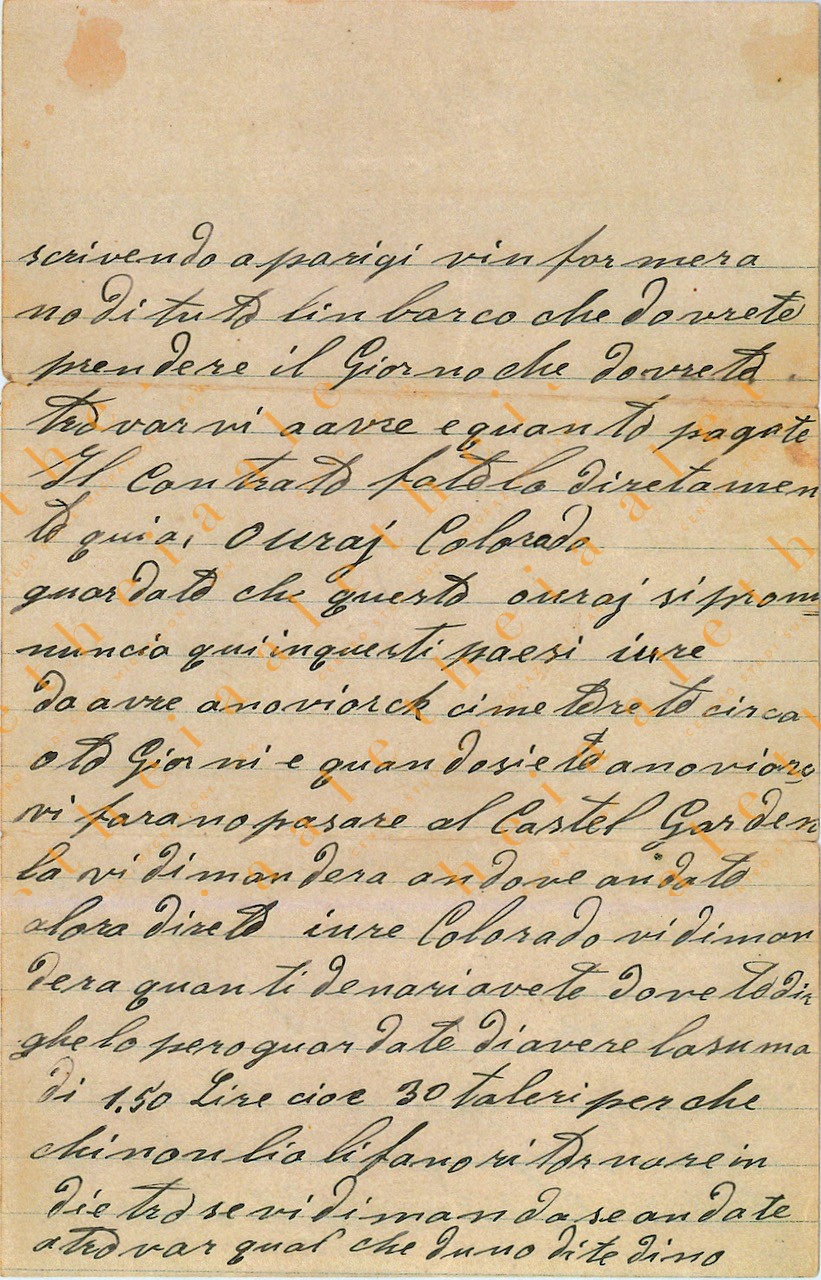 scrivendo a parigi vin for mera
no di tuto lin barco che dovrete
prendere il Giorno che dovrete
trovar vi aavre e quanto pagate
Il Contrato fatelo diretamen
te quia, Ouraj Colorado
guardate che questo ouraj si pronu
nuncia qui inquesti paesi iure
da avre a noviorck cimeterete circa
oto Giorni e quando siete a noviorc
vi farano pasare al Castel Garden
la vi dimandera andove andate
alora direte iure Colorado vi diman
dera quanti denari avete dovete dir
ghelo pero guardate di avere la suma
di 1.50 Lire cioe 30 taleri per che
chi non lia li fano ritornare in
dietro se vi dimanda se andate
atrovar qual che duno dite di no
aletheia